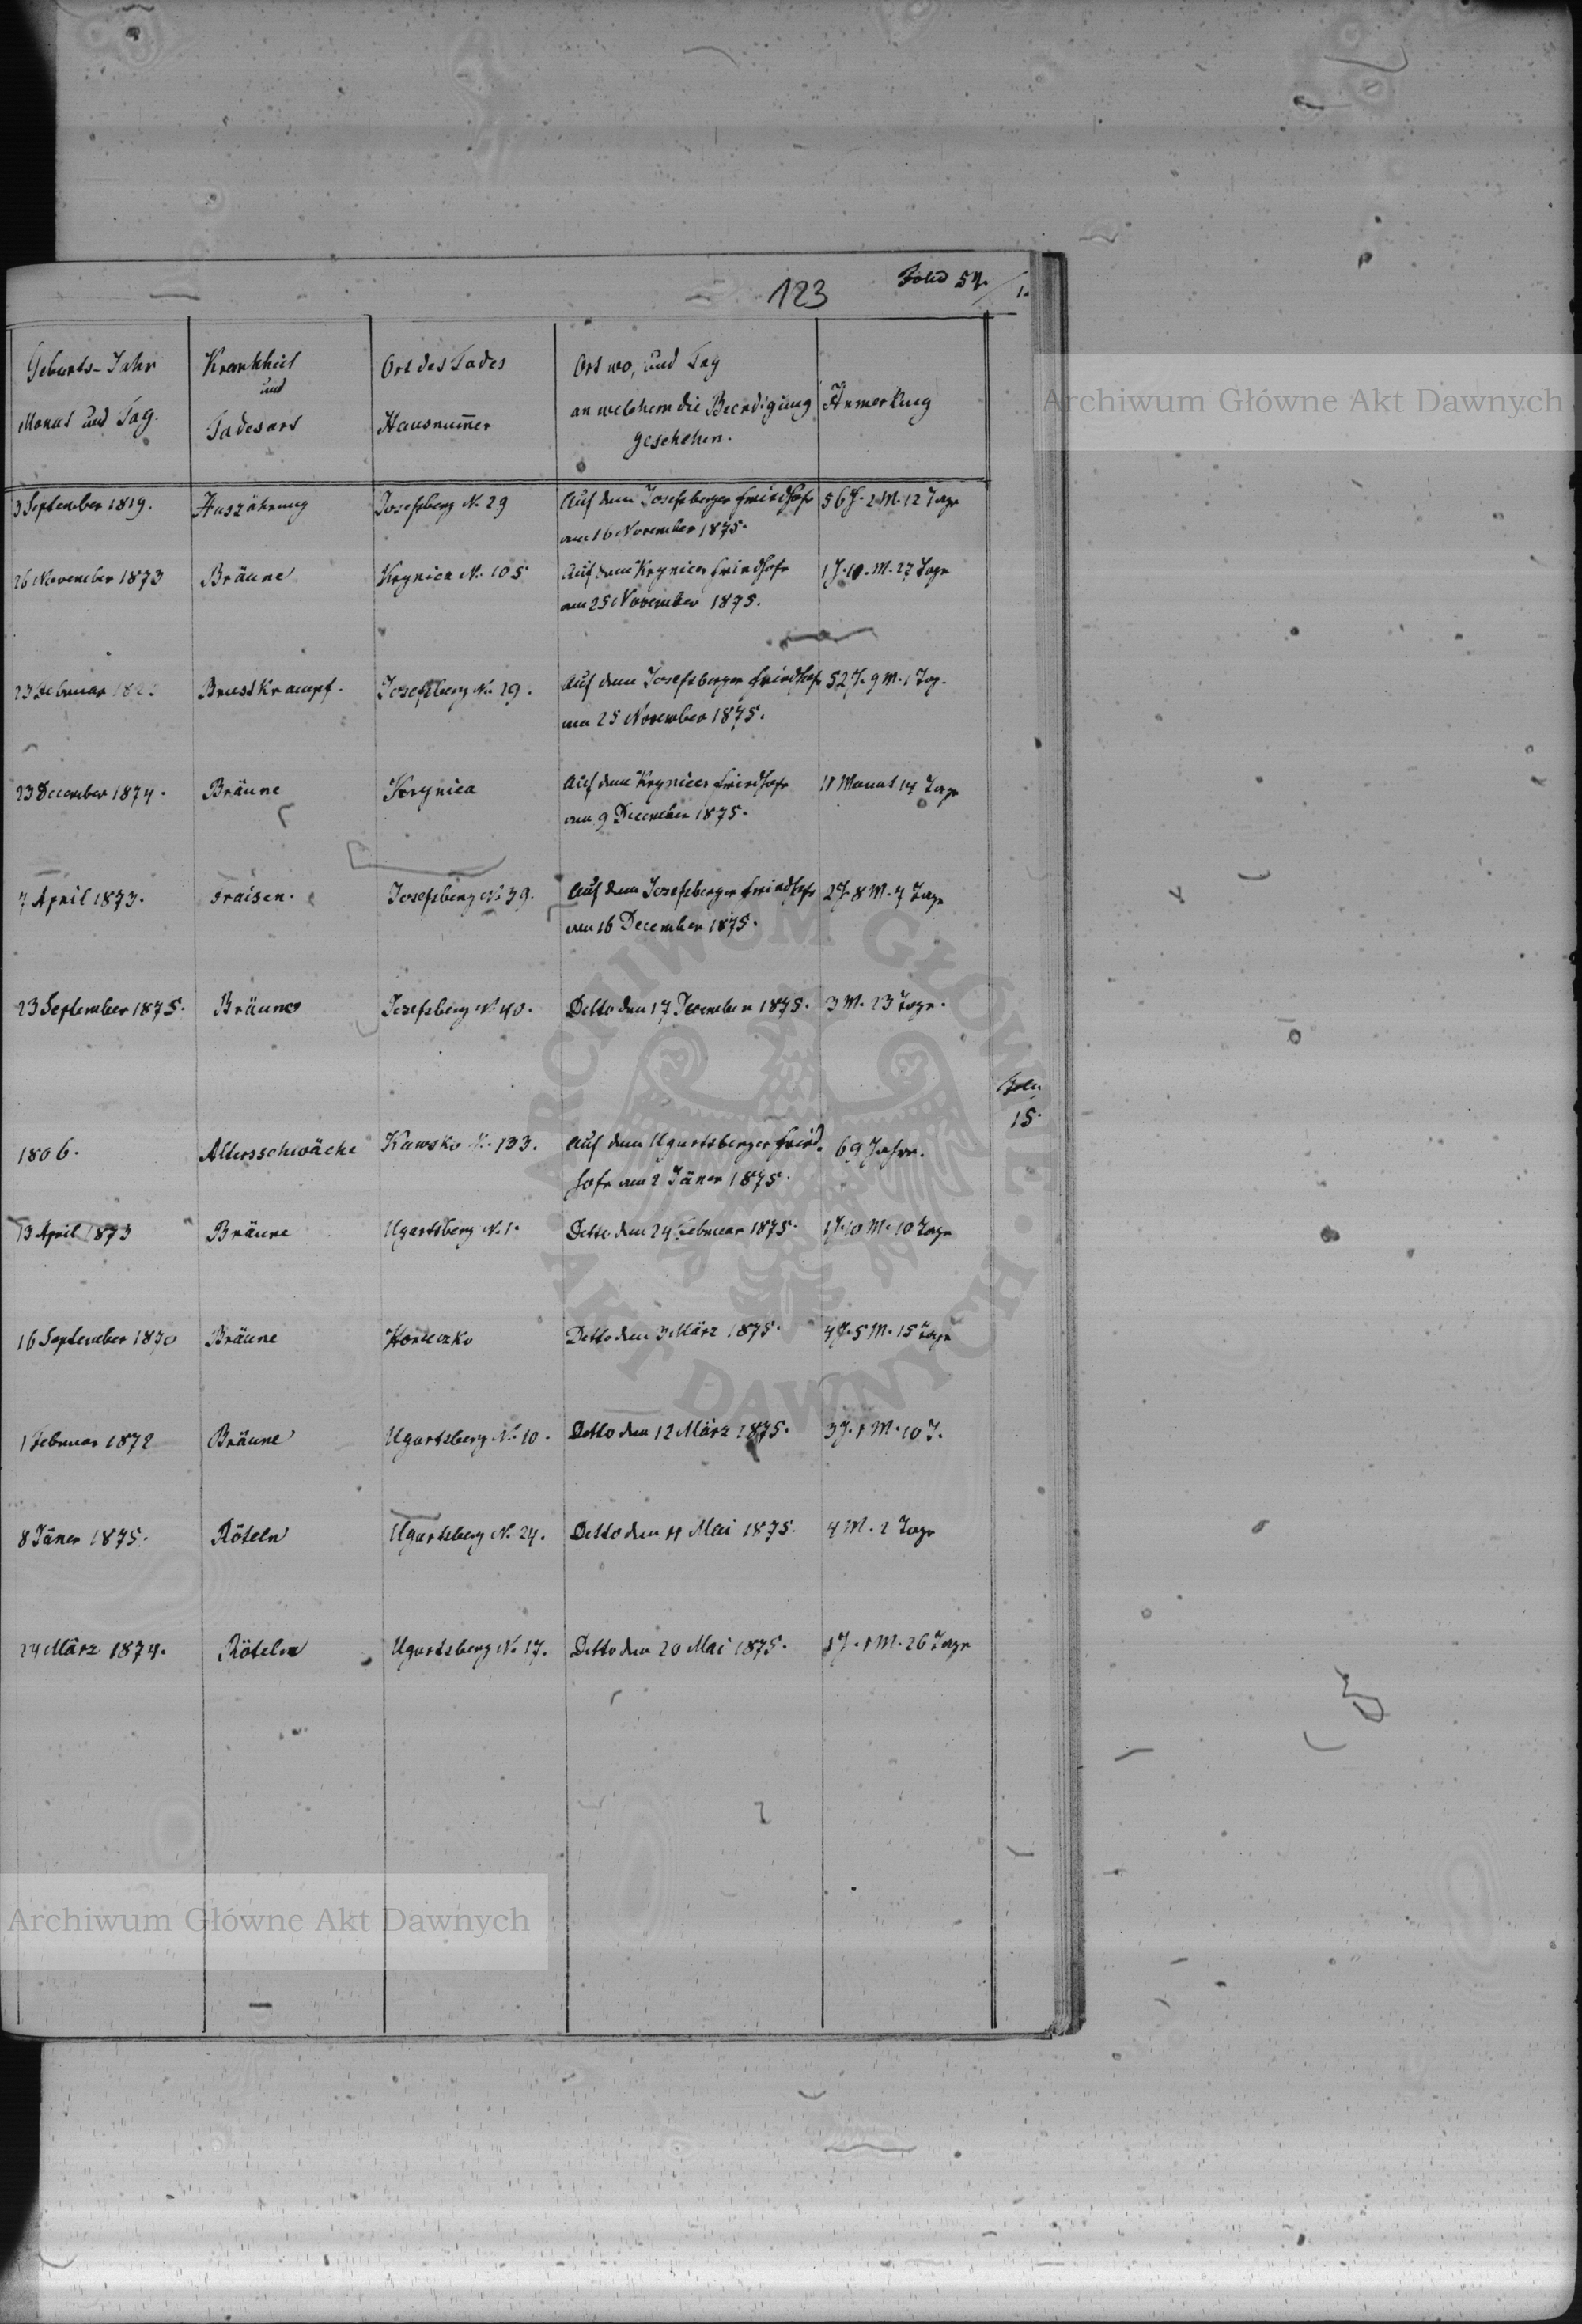 123 Folio 57.
Geburts-Jahr
Monat und Tag.
Krankheit
und
Todesart
Ort des Todes
Hausnum̅er
Ort wo, und Tag
an welchem die Beerdigung
geschehen.
Anmerkung
3 September 1819. Auszährung Josefsberg N. 29 Auf dem Josefsberger Friedhofe 56 J. 2 M. 12 Tage
am 16 November 1875.
26 November 1873 Bräune Krynica N. 105 Auf dem Krynicer Friedhofe 1 J. 10. M. 27 Tage
am 25 November 1875.
23 Februar Brustkrampf. Josefsberg N. 29. Auf dem Josefsberger Friedhofe 52 J. 9 M. 1 Tag.
am 25 November 1875.
23 December 1874. Bräune Krynica Auf dem Krynicer Friedhofe 11 Monat 14 Tage
am 9 December 1875.
7 April 1873. Fraisen. Josefsberg N. 39. Auf dem Josefsberger Friedhofe 2 J. 8 M. 7 Tage
am 16 December 1875.
23 September 1875. Bräune Josefsberg N. 40. Detto den 17 December 1875. 3 M. 23 Tage.
15.
1806. Altersschwäche Kawsko N. 133. Auf dem Ugartsberger Fried- 69 Jahre.
hofe am 2 Jäner 1875.
13 April 1873 Bräune Ugartsberg N. 1. Detto den 24 Februar 1875. 1 J. 10 M. 10 Tage
16 September 1870 Bräune Detto den 3 März 1875. 4 J. 5 M. 15 Tage
1 Februar 1872 Bräune Ugartsberg N. 10. Detto den 12 März 1875. 3 J. 1 M. 10 T.
8 Jäner 1875. Röteln Ugartsberg N. 24. Detto den 11 Mai 1875. 4 M. 2 Tage
24 März 1874. Röteln Ugartsberg N. 17. Detto den 20 Mai 1875. 1 J. 1 M. 26 Tage
Archiwum Główne Akt Dawnych
ARCHIWUM GŁÓWNE • AKT DAWNYCH •
Archiwum Główne Akt Dawnych